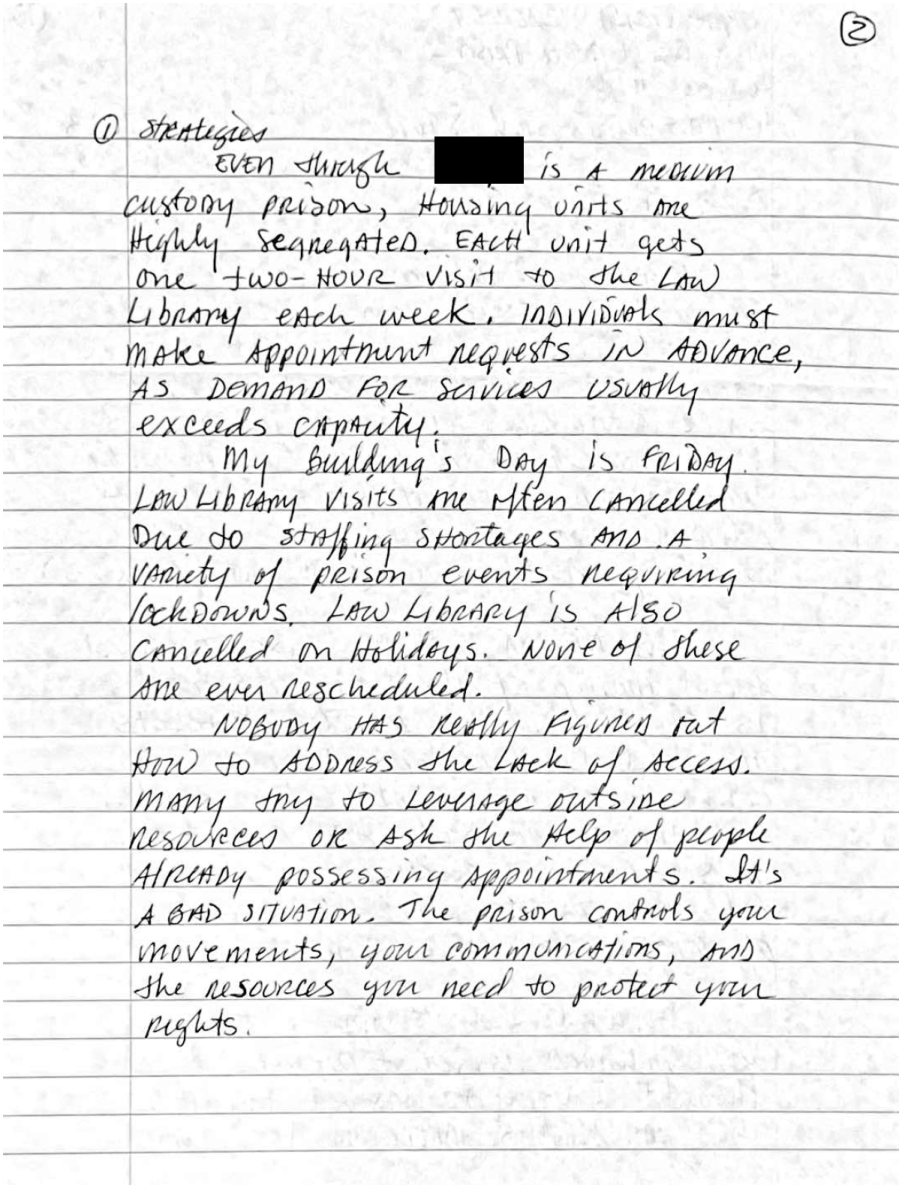 ②
① Strategies
EVEN through is A medium
custody prison, Housing units are
Highly segregated. EACH unit gets
one two-HOUR visit to the LAW
Library each week. INDIVIDUALS must
make Appointment requests IN ADVANCE,
AS DEMAND FOR services usually
exceeds capacity.
My Building's DAY is FRIDAY.
LAW LIBRARY visits are often cancelled
Due to staffing shortages AND A
VARIETY of prison events requiring
lockdowns. LAW LIBRARY is Also
cancelled on Holidays. None of these
are ever rescheduled.
NOBODY HAS really Figured out
How to ADDRESS the Lack of Access.
MANY try to Leverage outside
resources OR Ask the Help of people
AlREADY possessing appointments. It's
A BAD SITUATION. The prison controls your
movements, your communications, AND
the resources you need to protect your
rights.